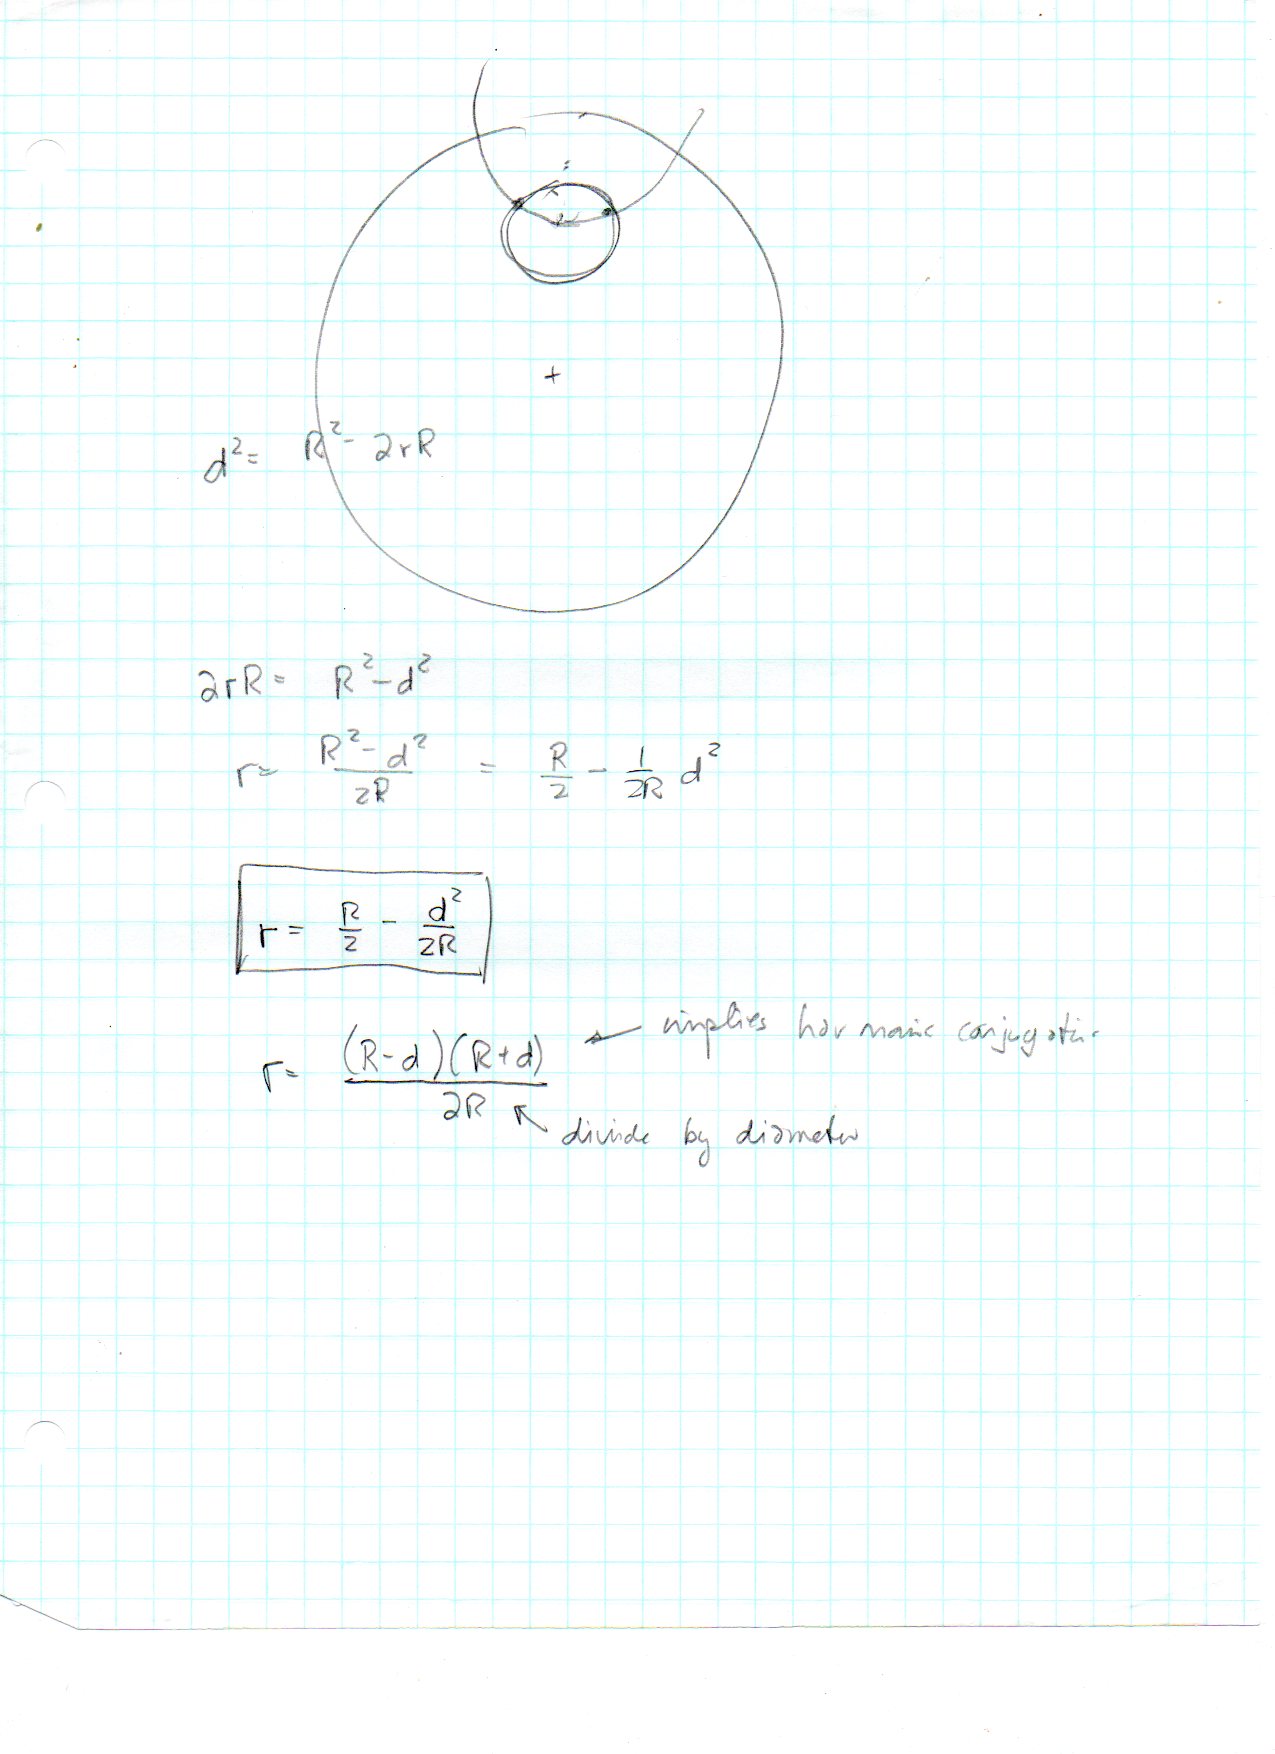 d² = R² - 2rR
2rR = R² - d²
r = (R² - d²)/2R = R/2 - 1/2R d²
r = R/2 - d²/2R
r = (R-d)(R+d)/2R ← implies harmonic conjugation
↖ divide by diameter